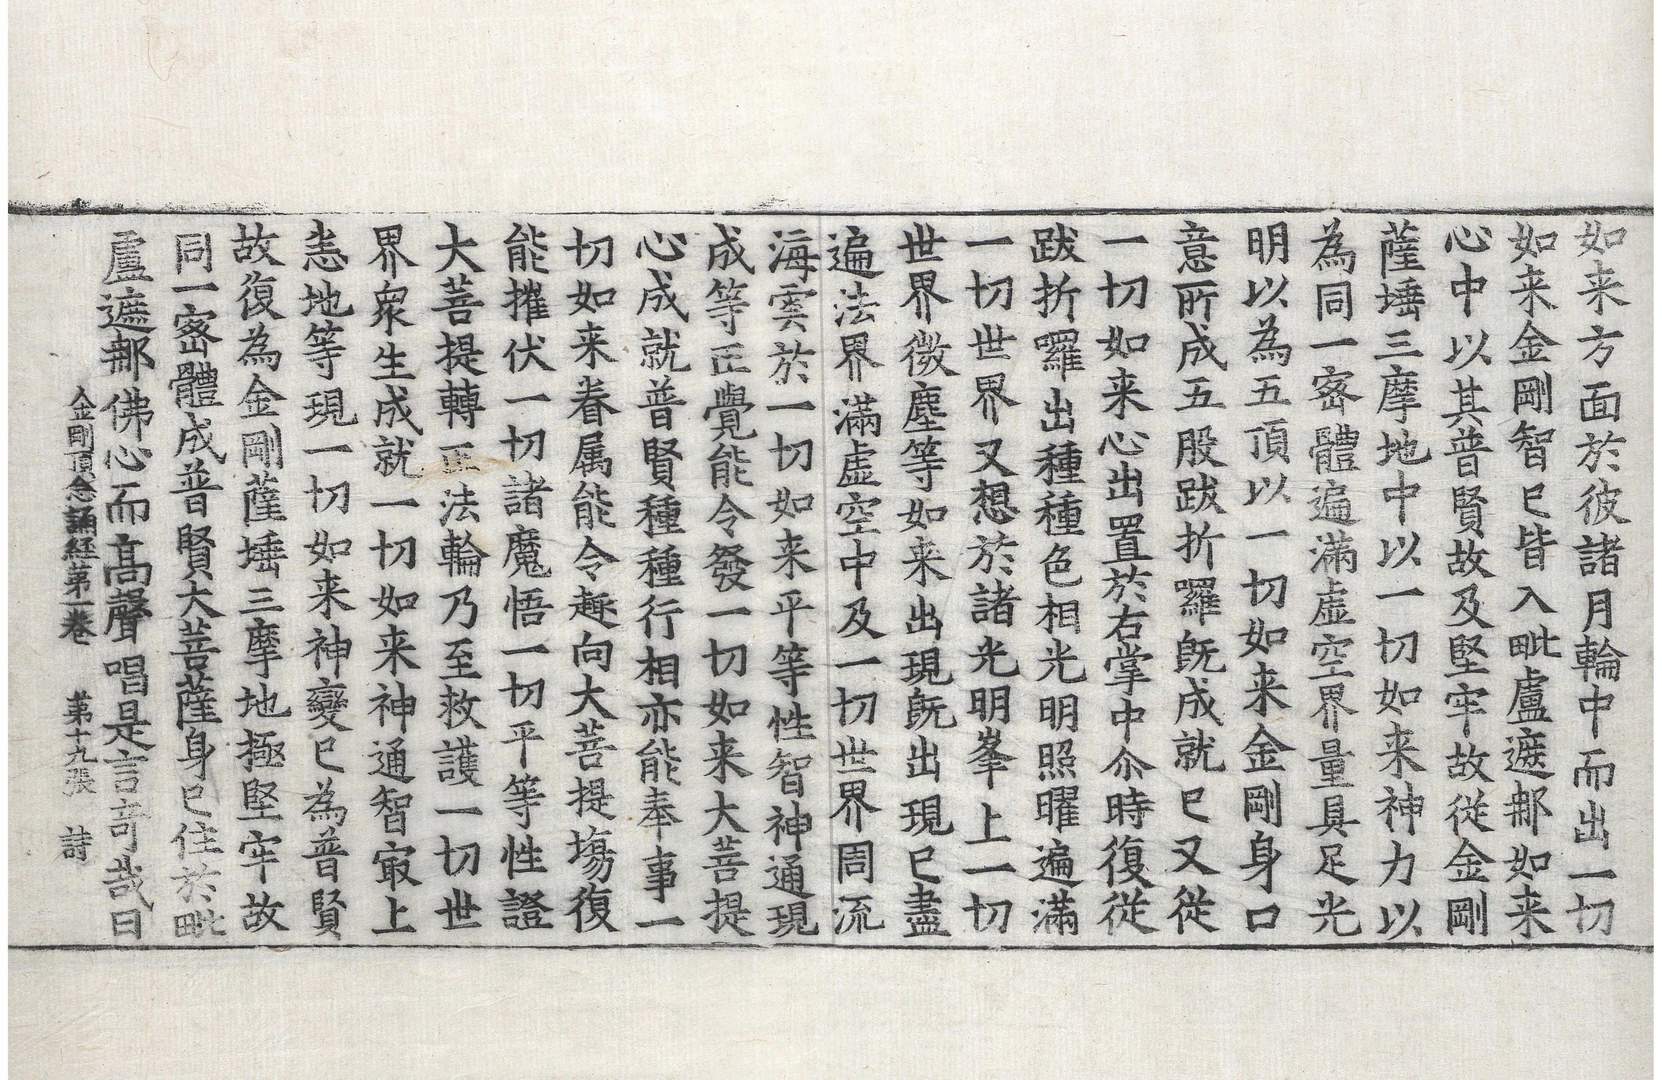 如来方面於彼諸月輪中而出一切
如来金剛智已皆入毗盧遮郍如来
心中以其普賢故及堅牢故從金剛
薩埵三摩地中以一切如来神力以
為同一宻體遍滿虛空界量具足光
明以為五頂以一切如来金剛身口
意所成五股跋折囉旣成就已又從
一切如来心出置於右掌中尒時復從
跋折囉出種種色相光明照曜遍滿
一切世界又想於諸光明峯上一切
世界微塵等如来出現旣出現已盡
遍法界滿虛空中及一切世界周流
海雲於一切如来平等性智神通現
成等正覺能令發一切如来大菩提
心成就普賢種種行相亦能奉事一
切如来眷属能令趣向大菩提場復
能摧伏一切諸魔悟一切平等性證
大菩提轉正法輪乃至救護一切世
界衆生成就一切如来神通智㝡上
悉地等現一切如来神變已為普賢
故復為金剛薩埵三摩地極堅牢故
同一宻體成普賢大菩薩身已住於毗
盧遮郍佛心而髙聲唱是言竒哉曰
金剛頂念誦経第一卷 第十九張 詩